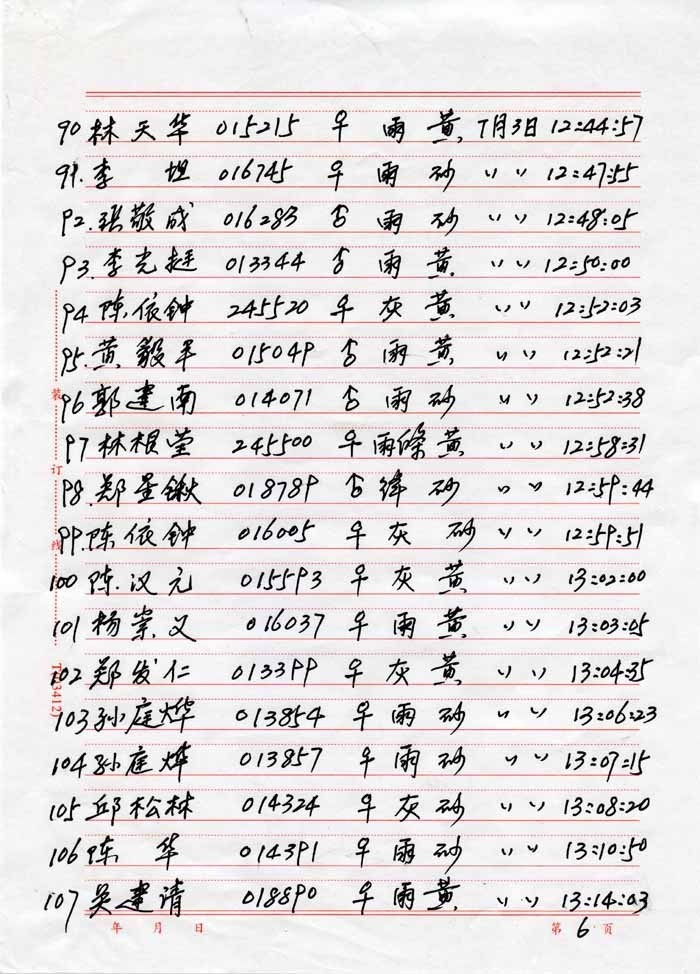 90 林天华 015215 ♀ 雨 黄 7月3日 12:44:57
91. 李 坦 016745 ♀ 雨 砂 〃 〃 12:47:55
92. 张敬成 016283 ♂ 雨 砂 〃 〃 12:48:05
93. 李克挺 013344 ♂ 雨 黄 〃 〃 12:50:00
94 陈依钟 245520 ♀ 灰 黄 〃 〃 12:52:03
95. 黄毅平 015049 ♂ 雨 黄 〃 〃 12:52:21
96 郭建南 014071 ♂ 雨 砂 〃 〃 12:52:38
97 林根莹 245500 ♀ 雨绛 黄 〃 〃 12:58:31
98. 郑星锹 018789 ♂ 绛 砂 〃 〃 12:59:44
99. 陈依钟 016005 ♀ 灰 砂 〃 〃 12:59:51
100 陈汉元 015593 ♀ 灰 黄 〃 〃 13:02:00
101 杨崇义 016037 ♀ 雨 黄 〃 〃 13:03:05
102 郑发仁 013399 ♀ 灰 黄 〃 〃 13:04:35
103 孙庭烨 013854 ♀ 雨 砂 〃 〃 13:06:23
104 孙庭烨 013857 ♀ 雨 砂 〃 〃 13:07:15
105 邱松林 014324 ♀ 灰 砂 〃 〃 13:08:20
106 陈 华 014391 ♀ 雨 砂 〃 〃 13:10:50
107 吴建清 018890 ♀ 雨 黄 〃 〃 13:14:03
年 月 日 第 6 页
装
订
线